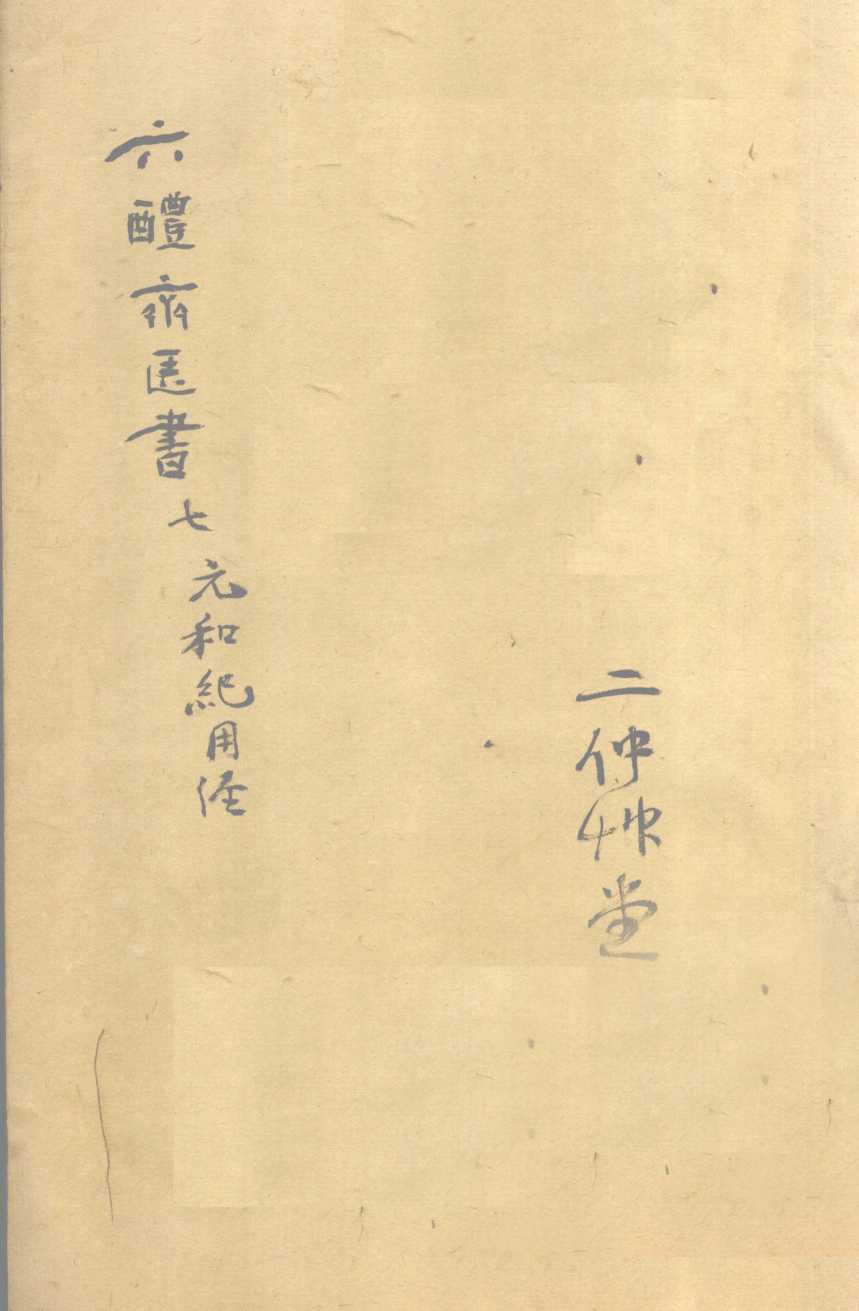 二仲艸堂
六醴齋医書 七 元和紀用经